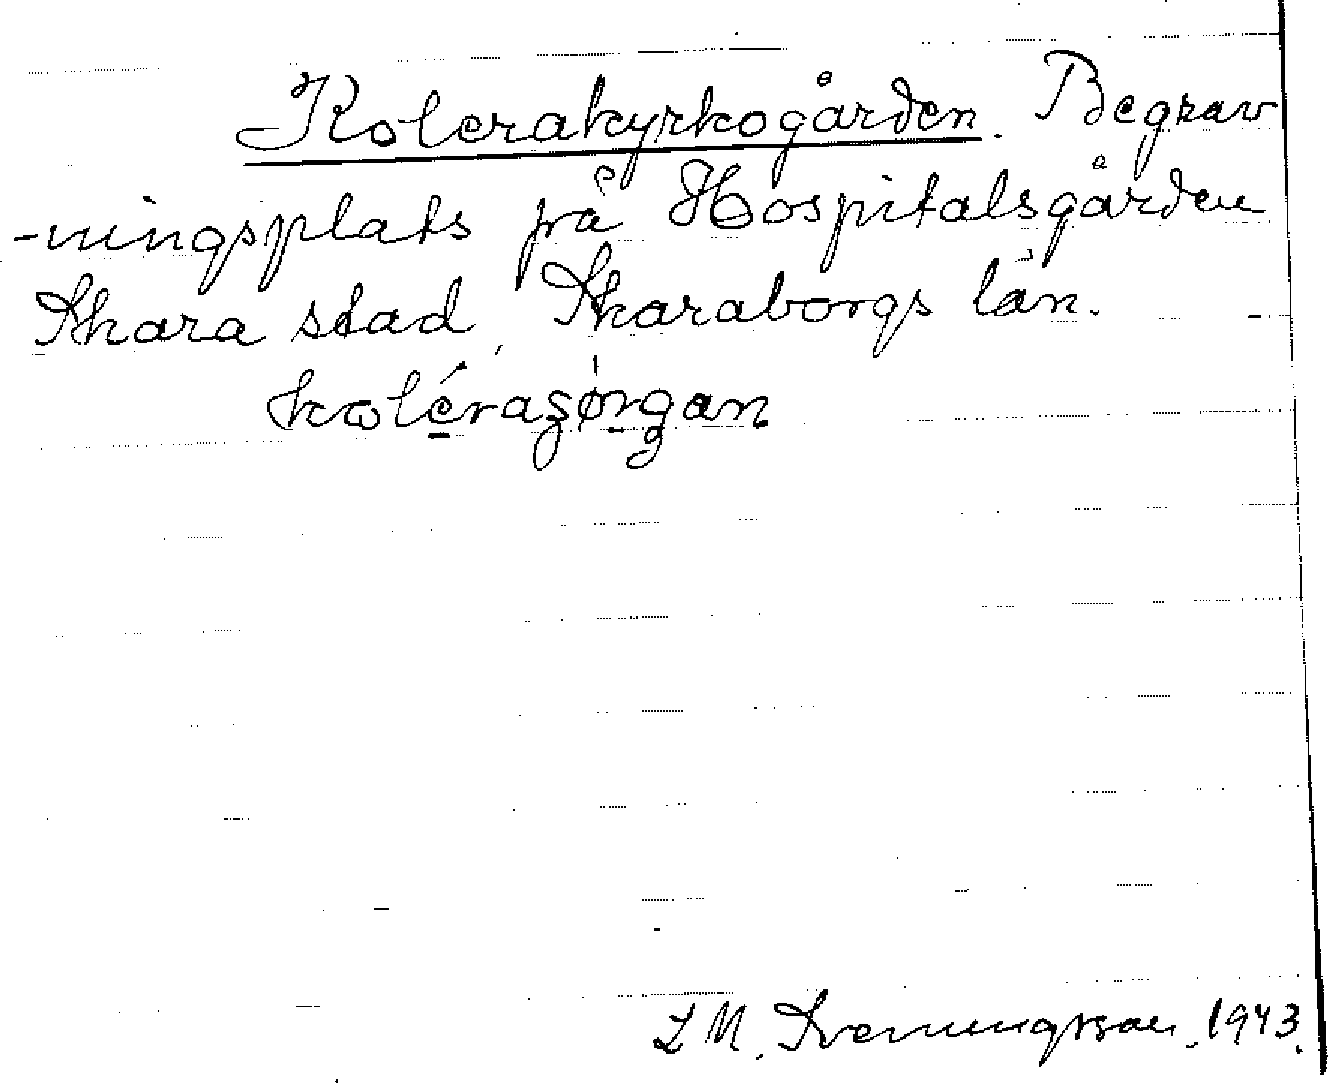 Kolerakyrkogården. Begrav
-ningsplats på Hospitalsgården
Skara stad, Skaraborgs län.
L M. Svenungsson. 1943.